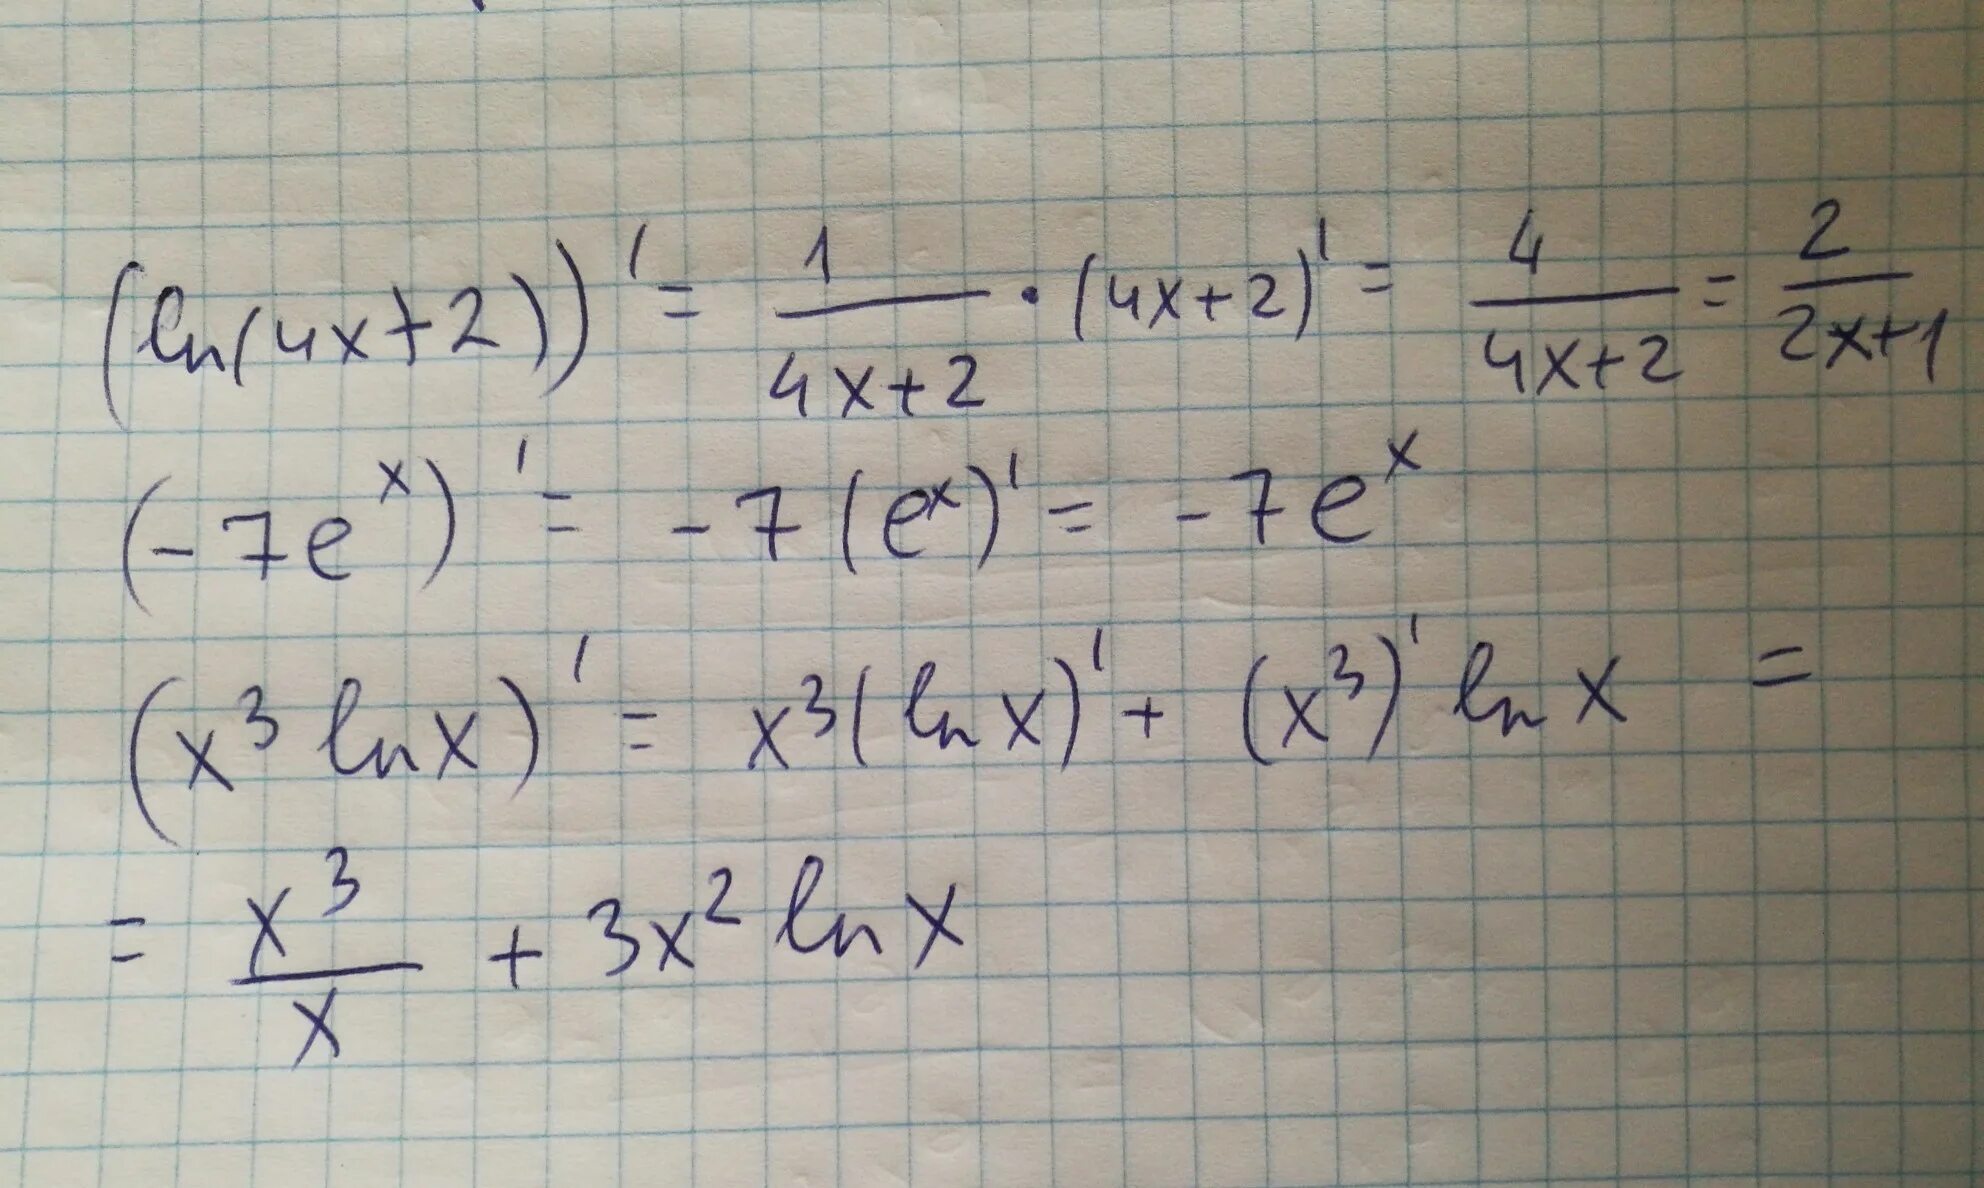 (ln(4x+2))' = 1/(4x+2) · (4x+2)' = 4/(4x+2) = 2/(2x+1)
(-7e^x)' = -7(e^x)' = -7e^x
(x³ ln x)' = x³(ln x)' + (x³)' ln x =
= x³/x + 3x² ln x